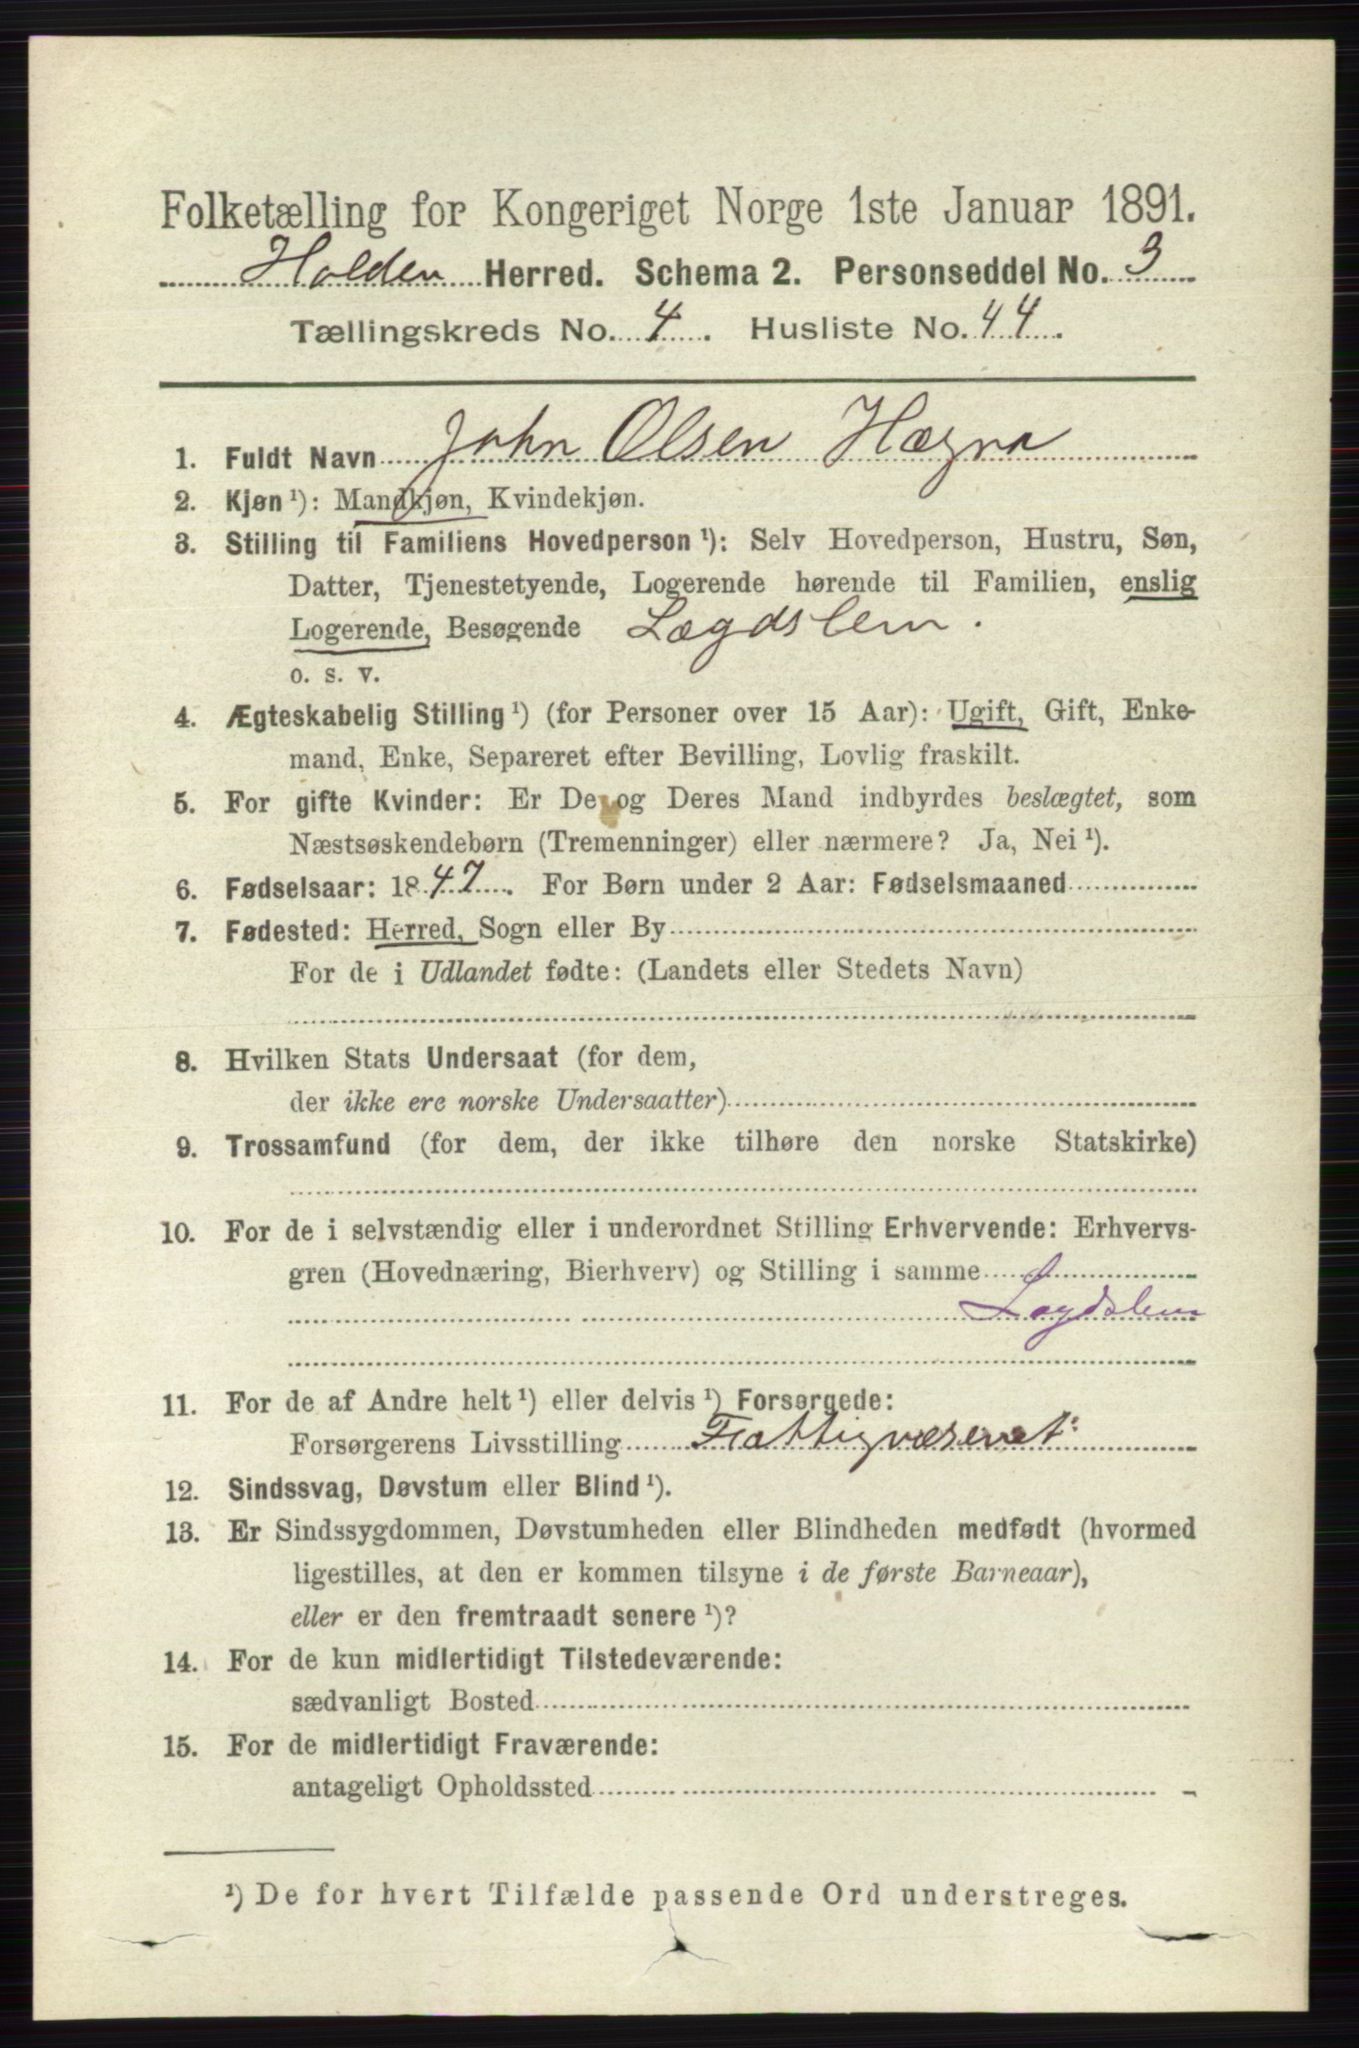 Folketælling for Kongeriget Norge 1ste Januar 1891.
Holden Herred. Schema 2. Personseddel No. 3
Tællingskreds No. 4. Husliste No. 44.
1. Fuldt Navn John Olsen Hægna
2. Kjøn ¹): Mandkjøn, Kvindekjøn.
3. Stilling til Familiens Hovedperson ¹): Selv Hovedperson, Hustru, Søn,
Datter, Tjenestetyende, Logerende hørende til Familien, enslig
Logerende, Besøgende Lægdslem.
o. s. v.
4. Ægteskabelig Stilling ¹) (for Personer over 15 Aar): Ugift, Gift, Enke-
mand, Enke, Separeret efter Bevilling, Lovlig fraskilt.
5. For gifte Kvinder: Er De og Deres Mand indbyrdes beslægtet, som
Næstsøskendebørn (Tremenninger) eller nærmere? Ja, Nei ¹).
6. Fødselsaar: 1847. For Børn under 2 Aar: Fødselsmaaned
7. Fødested: Herred, Sogn eller By
For de i Udlandet fødte: (Landets eller Stedets Navn)
8. Hvilken Stats Undersaat (for dem,
der ikke ere norske Undersaatter)
9. Trossamfund (for dem, der ikke tilhøre den norske Statskirke)
10. For de i selvstændig eller i underordnet Stilling Erhvervende: Erhvervs-
gren (Hovednæring, Bierhverv) og Stilling i samme
Lægdslem
11. For de af Andre helt ¹) eller delvis ¹) Forsørgede:
Forsørgerens Livsstilling Fattigvæsenet
12. Sindssvag, Døvstum eller Blind ¹).
13. Er Sindssygdommen, Døvstumheden eller Blindheden medfødt (hvormed
ligestilles, at den er kommen tilsyne i de første Barneaar),
eller er den fremtraadt senere ¹)?
14. For de kun midlertidigt Tilstedeværende:
sædvanligt Bosted
15. For de midlertidigt Fraværende:
antageligt Opholdssted
¹) De for hvert Tilfælde passende Ord understreges.